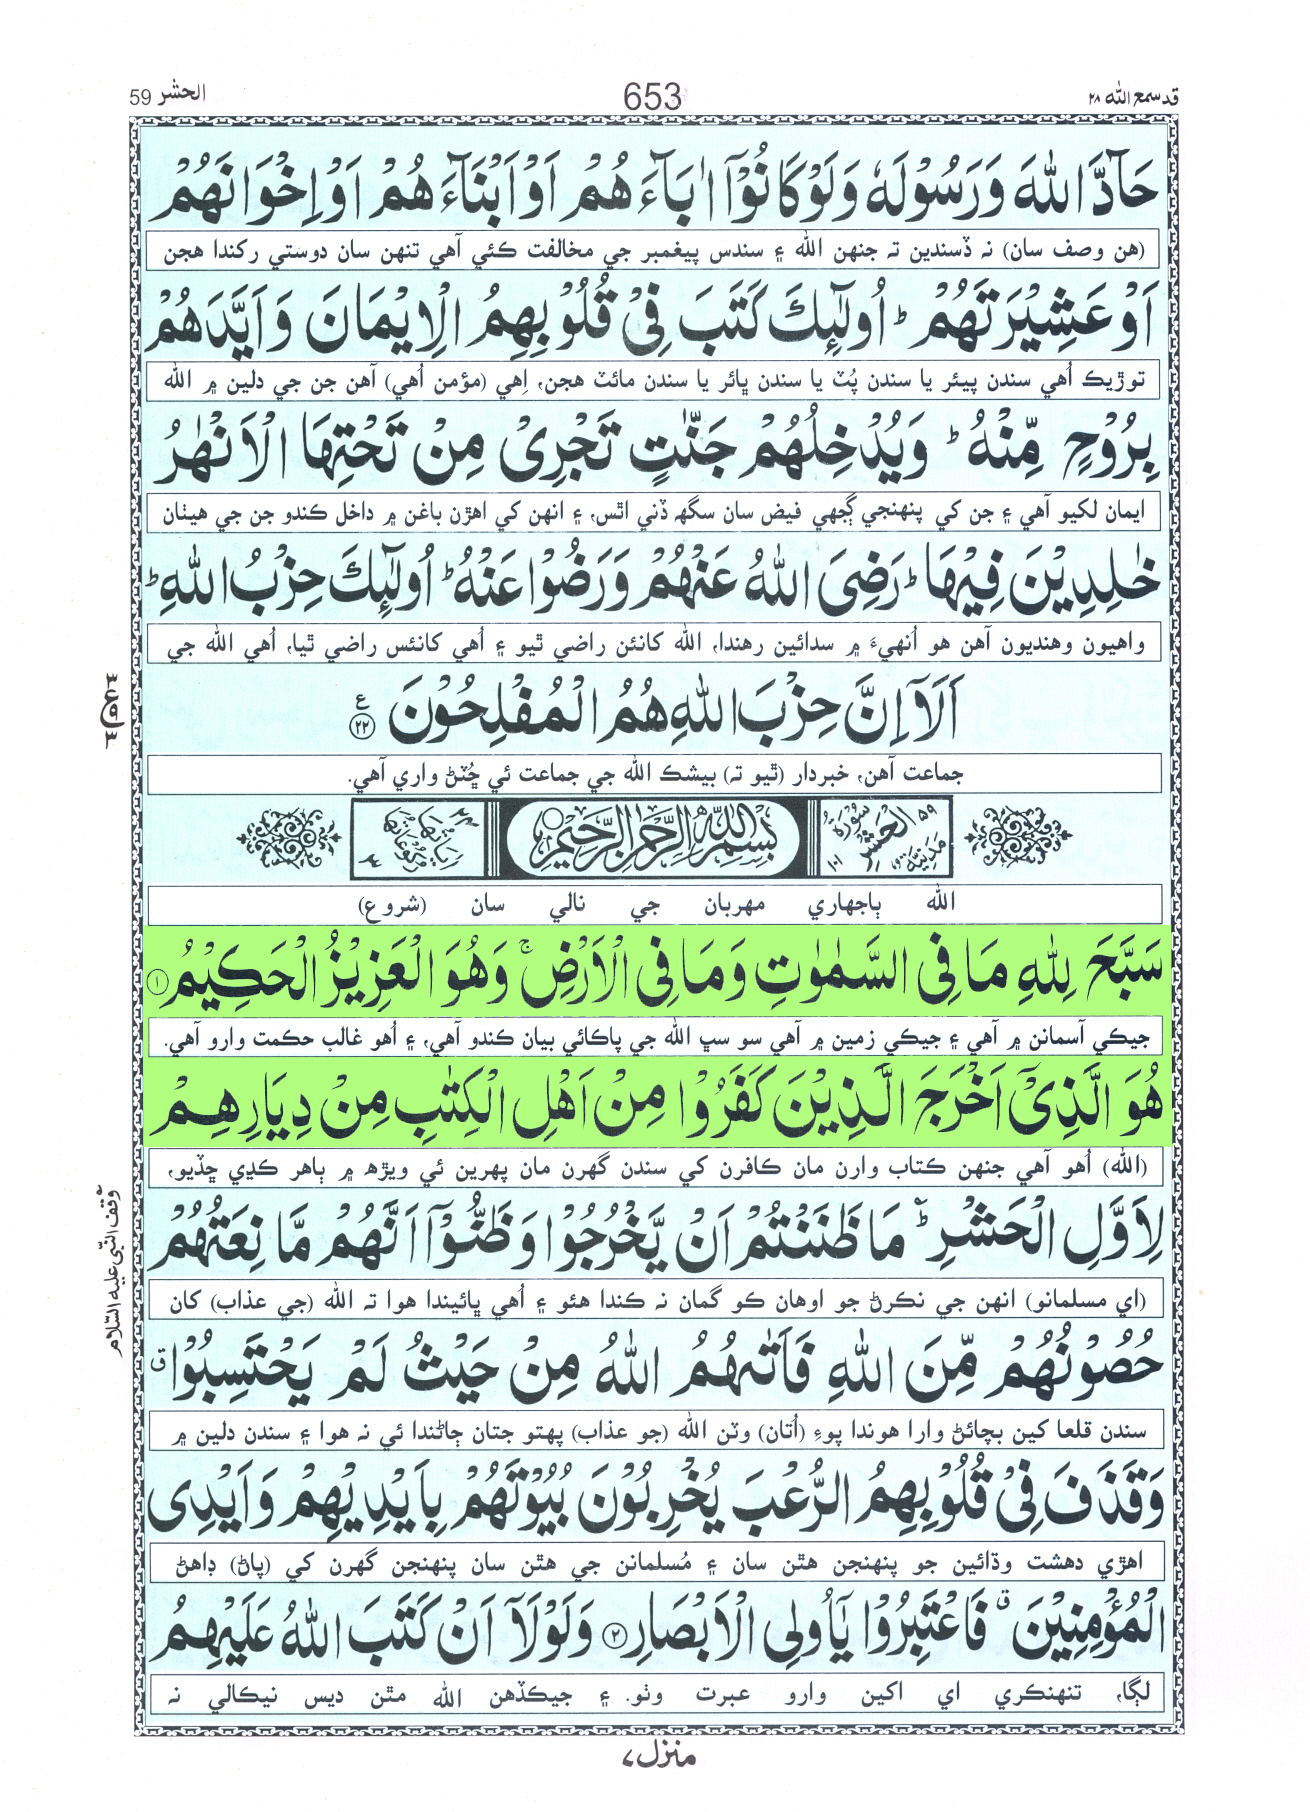 قد سمع الله ۲۸
653
الحشر 59
حَآدَّ اللّٰهَ وَرَسُوْلَهٗ وَلَوْ كَانُوْۤا اٰبَآءَ هُمْ اَوْ اَبْنَآءَ هُمْ اَوْ اِخْوَانَهُمْ
(هن وصف سان) نہ ڏسندين تہ جنهن الله ۽ سندس پيغمبر جي مخالفت ڪئي آهي تنهن سان دوستي رکندا هجن
اَوْ عَشِيْرَتَهُمْ ؕ اُولٰٓئِكَ كَتَبَ فِيْ قُلُوْبِهِمُ الْاِيْمَانَ وَاَيَّدَهُمْ
توڙيڪ اُهي سندن پيئر يا سندن پُٽ يا سندن ڀائر يا سندن مائٽ هجن، اِهي (مؤمن اُهي) آهن جن جي دلين ۾ الله
بِرُوْحٍ مِّنْهُ ؕ وَيُدْخِلُهُمْ جَنّٰتٍ تَجْرِيْ مِنْ تَحْتِهَا الْاَنْهٰرُ
ايمان لکيو آهي ۽ جن کي پنهنجي ڳجهي فيض سان سگھ ڏني اٿس، ۽ انهن کي اهڙن باغن ۾ داخل ڪندو جن جي هيٺان
خٰلِدِيْنَ فِيْهَا ؕ رَضِيَ اللّٰهُ عَنْهُمْ وَرَضُوْا عَنْهُ ؕ اُولٰٓئِكَ حِزْبُ اللّٰهِ ؕ
واهيون وهنديون آهن هو اُنهيءَ ۾ سدائين رهندا، الله کانئن راضي ٿيو ۽ اُهي کانئس راضي ٿيا، اُهي الله جي
اَلَاۤ اِنَّ حِزْبَ اللّٰهِ هُمُ الْمُفْلِحُوْنَ ۲۲ ع
جماعت آهن، خبردار (ٿيو تہ) بيشڪ الله جي جماعت ئي ڇُٽڻ واري آهي.
۵۹ سُوْرَةُ الْحَشْرِ مَدَنِيَّةٌ ۱۰۱
بِسْمِ اللّٰهِ الرَّحْمٰنِ الرَّحِيْمِ
اٰيَاتُهَا ۲۴ رُكُوْعَاتُهَا ۳
الله ٻاجهاري مهربان جي نالي سان (شروع)
سَبَّحَ لِلّٰهِ مَا فِي السَّمٰوٰتِ وَمَا فِي الْاَرْضِ ۚ وَهُوَ الْعَزِيْزُ الْحَكِيْمُ ۱
جيڪي آسمانن ۾ آهي ۽ جيڪي زمين ۾ آهي سو سڀ الله جي پاڪائي بيان ڪندو آهي، ۽ اُهو غالب حڪمت وارو آهي.
هُوَ الَّذِيْۤ اَخْرَجَ الَّذِيْنَ كَفَرُوْا مِنْ اَهْلِ الْكِتٰبِ مِنْ دِيَارِهِمْ
(الله) اُهو آهي جنهن ڪتاب وارن مان ڪافرن کي سندن گهرن مان پهرين ئي ويڙھ ۾ ٻاهر ڪڍي ڇڏيو،
لِاَوَّلِ الْحَشْرِ ؕ مَا ظَنَنْتُمْ اَنْ يَّخْرُجُوْا وَظَنُّوْۤا اَنَّهُمْ مَّانِعَتُهُمْ
(اي مسلمانو) انهن جي نڪرڻ جو اوهان ڪو گمان نہ ڪندا هئو ۽ اُهي ڀائيندا هوا تہ الله (جي عذاب) کان
حُصُوْنُهُمْ مِّنَ اللّٰهِ فَاَتٰىهُمُ اللّٰهُ مِنْ حَيْثُ لَمْ يَحْتَسِبُوْا ۗ
سندن قلعا کين بچائڻ وارا هوندا پوءِ (اُتان) وٽن الله (جو عذاب) پهتو جتان ڄاڻندا ئي نہ هوا ۽ سندن دلين ۾
وَقَذَفَ فِيْ قُلُوْبِهِمُ الرُّعْبَ يُخْرِبُوْنَ بُيُوْتَهُمْ بِاَيْدِيْهِمْ وَاَيْدِي
اهڙي دهشت وڌائين جو پنهنجن هٿن سان ۽ مُسلمانن جي هٿن سان پنهنجن گهرن کي (پاڻ) ڊاهڻ
الْمُؤْمِنِيْنَ ۗ فَاعْتَبِرُوْا يٰۤاُولِي الْاَبْصَارِ ۲ وَلَوْلَاۤ اَنْ كَتَبَ اللّٰهُ عَلَيْهِمُ
لڳا، تنهنڪري اي اکين وارو عبرت وٺو. ۽ جيڪڏهن الله مٿن ديس نيڪالي نہ
وقف النبي عليه السلام
منزل ۷